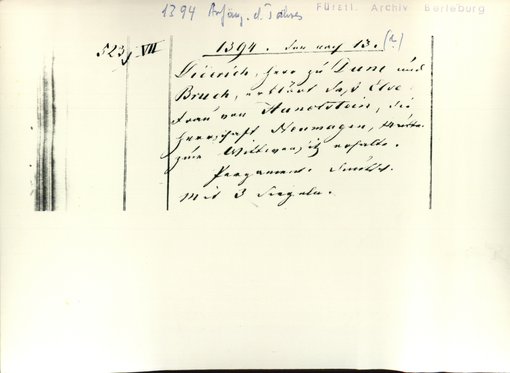 1394 Anfang d. Jahres
Fürstl. Archiv Berleburg
523, VII
1394. den nach 13. (?)
Dietrich, Herr zu Dune und
Bruch, erklärt daß Else,
Frau von Hunolstein, die
Herrschaft Neumagen,
zum Wittwensitz erhalte.
Pergament.
Mit 3 Siegeln.